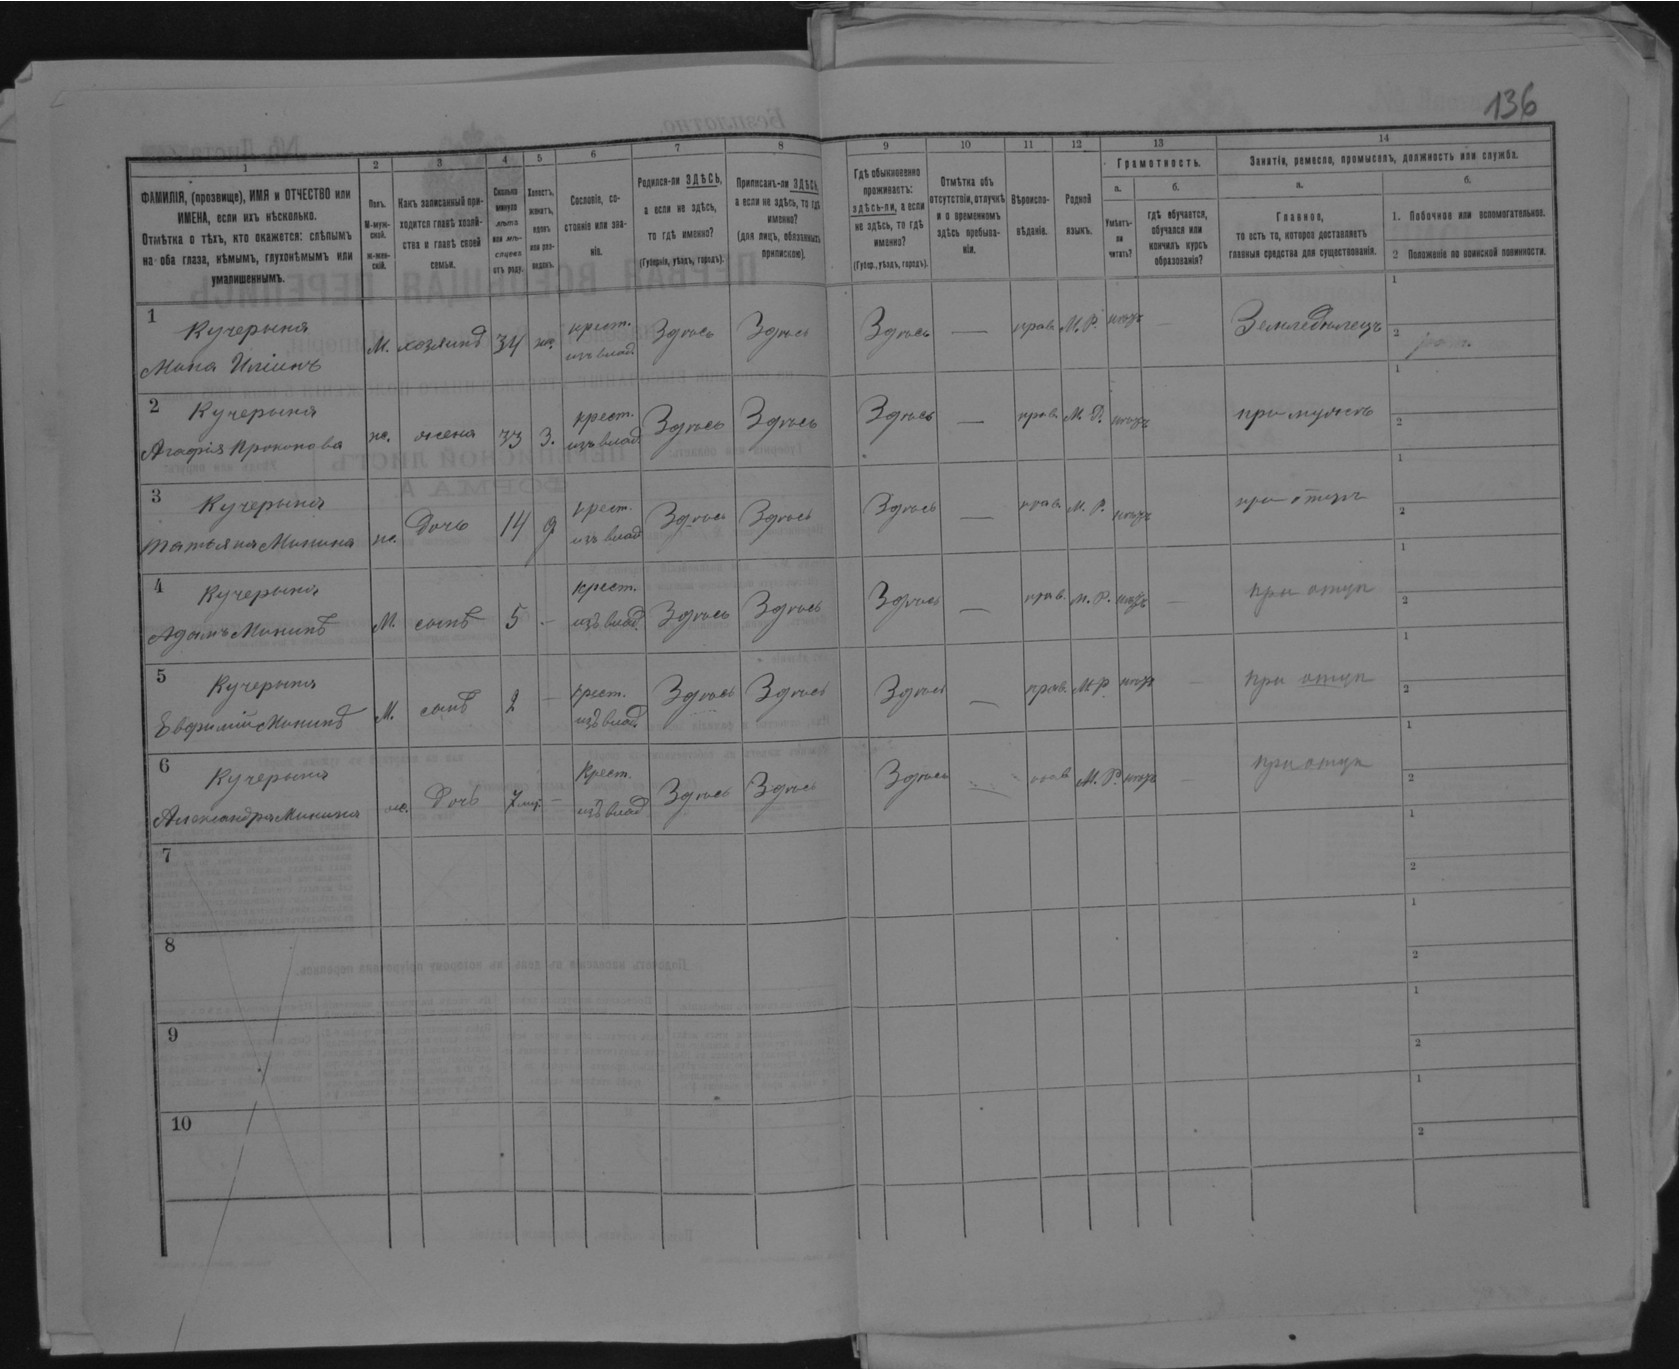 136
1
2
3
4
5
6
7
8
9
10
11
12
13
14
ФАМИЛІЯ, (прозвище), ИМЯ и ОТЧЕСТВО или
ИМЕНА, если ихъ нѣсколько.
Отмѣтка о тѣхъ, кто окажется: слѣпымъ
на оба глаза, нѣмымъ, глухонѣмымъ или
умалишеннымъ.
Полъ.
М-муж-
ской.
ж-жен-
скій.
Какъ записанный при-
ходится главѣ хозяй-
ства и главѣ своей
семьи.
Сколько
минуло
лѣтъ
или мѣ-
сяцевъ
отъ роду.
Холостъ,
женатъ,
вдовъ
или раз-
веденъ.
Сословіе, со-
стояніе или зва-
ніе.
Родился-ли ЗДѢСЬ,
а если не здѣсь,
то гдѣ именно?
(Губернія, уѣздъ, городъ).
Приписанъ-ли ЗДѢСЬ,
а если не здѣсь, то гдѣ
именно?
(для лицъ, обязанныхъ
припискою).
Гдѣ обыкновенно
проживаетъ:
здѣсь-ли, а если
не здѣсь, то гдѣ
именно?
(Губер., уѣздъ, городъ).
Отмѣтка объ
отсутствіи, отлучкѣ
и о временномъ
здѣсь пребыва-
ніи.
Вѣроиспо-
вѣданіе.
Родной
языкъ.
Грамотность.
а.
Умѣетъ-
ли
читать?
б.
гдѣ обучается,
обучался или
кончилъ курсъ
образованія?
Занятія, ремесло, промыселъ, должность или служба.
а.
Главное,
то есть то, которое доставляетъ
главныя средства для существованія.
б.
1. Побочное или вспомогательное.
2 Положеніе по воинской повинности.
1 Кучерына М. хозяинъ 34 ж. крест. Здѣсь Здѣсь Здѣсь — прав. М. Р. нѣтъ — Земледѣлецъ 1
Мина изъ влад. 2
2 Кучерына ж. жена 33 З. крест. Здѣсь Здѣсь Здѣсь — прав. М. Р. нѣтъ при мужѣ 1
Агафія Прокопова изъ влад. 2
3 Кучерына ж. дочь 14 д крест. Здѣсь Здѣсь Здѣсь — прав. М. Р. нѣтъ при отцѣ 1
Татьяна Минина изъ влад. 2
4 Кучерына М. сынъ 5 — крест. Здѣсь Здѣсь Здѣсь — прав. М. Р. нѣтъ — при отцѣ 1
Адамъ Мининъ изъ влад. 2
5 Кучерына М. сынъ 2 — крест. Здѣсь Здѣсь Здѣсь — прав. М. Р. нѣтъ — при отцѣ 1
Евфимій Мининъ изъ влад. 2
6 Кучерына ж. дочь 7 мѣс. — Крест. Здѣсь Здѣсь Здѣсь — прав. М. Р. нѣтъ — при отцѣ 1
Александра Минина изъ влад. 2
7 1
2
8 1
2
9 1
2
10 1
2